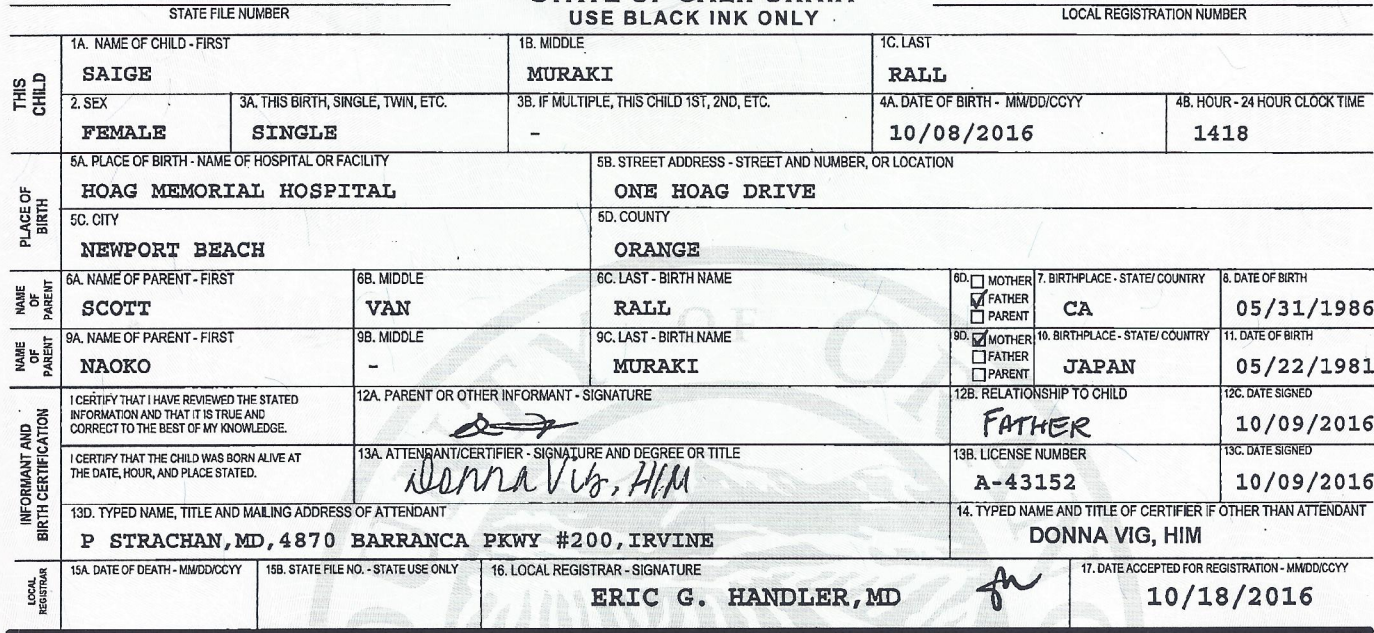 STATE FILE NUMBER
USE BLACK INK ONLY
LOCAL REGISTRATION NUMBER
THIS CHILD
1A. NAME OF CHILD - FIRST
SAIGE
1B. MIDDLE
MURAKI
1C. LAST
RALL
2. SEX
FEMALE
3A. THIS BIRTH, SINGLE, TWIN, ETC.
SINGLE
3B. IF MULTIPLE, THIS CHILD 1ST, 2ND, ETC.
-
4A. DATE OF BIRTH - MM/DD/CCYY
10/08/2016
4B. HOUR - 24 HOUR CLOCK TIME
1418
PLACE OF BIRTH
5A. PLACE OF BIRTH - NAME OF HOSPITAL OR FACILITY
HOAG MEMORIAL HOSPITAL
5B. STREET ADDRESS - STREET AND NUMBER, OR LOCATION
ONE HOAG DRIVE
5C. CITY
NEWPORT BEACH
5D. COUNTY
ORANGE
NAME OF PARENT
6A. NAME OF PARENT - FIRST
SCOTT
6B. MIDDLE
VAN
6C. LAST - BIRTH NAME
RALL
6D. MOTHER
FATHER
PARENT
7. BIRTHPLACE - STATE/ COUNTRY
CA
8. DATE OF BIRTH
05/31/1986
NAME OF PARENT
9A. NAME OF PARENT - FIRST
NAOKO
9B. MIDDLE
-
9C. LAST - BIRTH NAME
MURAKI
9D. MOTHER
FATHER
PARENT
10. BIRTHPLACE - STATE/ COUNTRY
JAPAN
11. DATE OF BIRTH
05/22/1981
INFORMANT AND BIRTH CERTIFICATION
I CERTIFY THAT I HAVE REVIEWED THE STATED
INFORMATION AND THAT IT IS TRUE AND
CORRECT TO THE BEST OF MY KNOWLEDGE.
12A. PARENT OR OTHER INFORMANT - SIGNATURE
12B. RELATIONSHIP TO CHILD
FATHER
12C. DATE SIGNED
10/09/2016
I CERTIFY THAT THE CHILD WAS BORN ALIVE AT
THE DATE, HOUR, AND PLACE STATED.
13A. ATTENDANT/CERTIFIER - SIGNATURE AND DEGREE OR TITLE
Donna Vig, HIM
13B. LICENSE NUMBER
A-43152
13C. DATE SIGNED
10/09/2016
13D. TYPED NAME, TITLE AND MAILING ADDRESS OF ATTENDANT
P STRACHAN,MD,4870 BARRANCA PKWY #200,IRVINE
14. TYPED NAME AND TITLE OF CERTIFIER IF OTHER THAN ATTENDANT
DONNA VIG, HIM
LOCAL REGISTRAR
15A. DATE OF DEATH - MM/DD/CCYY
15B. STATE FILE NO. - STATE USE ONLY
16. LOCAL REGISTRAR - SIGNATURE
ERIC G. HANDLER,MD
17. DATE ACCEPTED FOR REGISTRATION - MM/DD/CCYY
10/18/2016